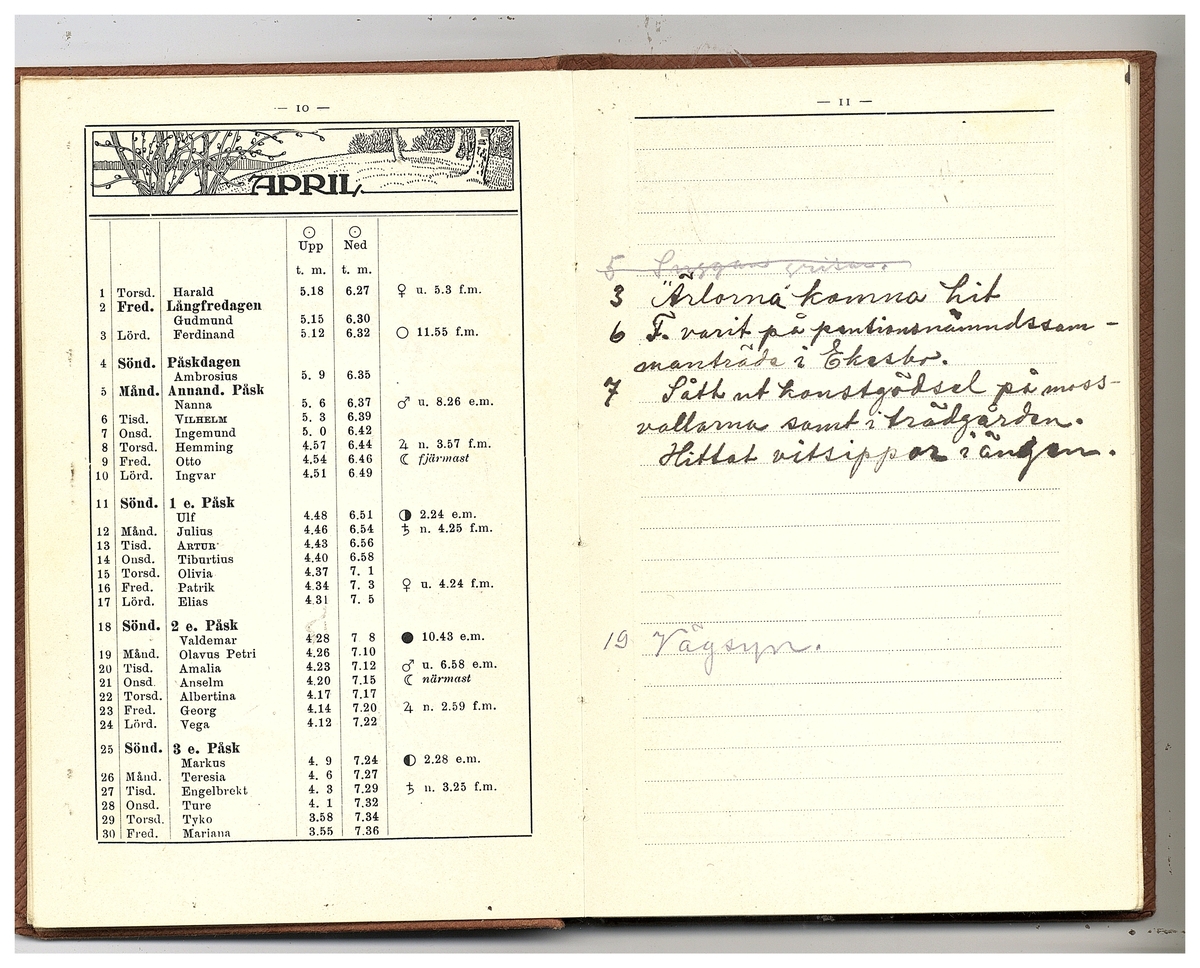 — 10 —
APRIL
☉ ☉
Upp Ned
t. m. t. m.
1 Torsd. Harald 5.18 6.27 ♀ u. 5.3 f.m.
2 Fred. Långfredagen
Gudmund 5.15 6.30
3 Lörd. Ferdinand 5.12 6.32 ○ 11.55 f.m.
4 Sönd. Påskdagen
Ambrosius 5. 9 6.35
5 Månd. Annand. Påsk
Nanna 5. 6 6.37 ♂ u. 8.26 e.m.
6 Tisd. VILHELM 5. 3 6.39
7 Onsd. Ingemund 5. 0 6.42
8 Torsd. Hemming 4.57 6.44 ♃ n. 3.57 f.m.
9 Fred. Otto 4.54 6.46 ☾ fjärmast
10 Lörd. Ingvar 4.51 6.49
11 Sönd. 1 e. Påsk
Ulf 4.48 6.51 ◑ 2.24 e.m.
12 Månd. Julius 4.46 6.54 ♄ n. 4.25 f.m.
13 Tisd. ARTUR 4.43 6.56
14 Onsd. Tiburtius 4.40 6.58
15 Torsd. Olivia 4.37 7. 1
16 Fred. Patrik 4.34 7. 3 ♀ u. 4.24 f.m.
17 Lörd. Elias 4.31 7. 5
18 Sönd. 2 e. Påsk
Valdemar 4.28 7 8 ● 10.43 e.m.
19 Månd. Olavus Petri 4.26 7.10
20 Tisd. Amalia 4.23 7.12 ♂ u. 6.58 e.m.
21 Onsd. Anselm 4.20 7.15 ☾ närmast
22 Torsd. Albertina 4.17 7.17
23 Fred. Georg 4.14 7.20 ♃ n. 2.59 f.m.
24 Lörd. Vega 4.12 7.22
25 Sönd. 3 e. Påsk
Markus 4. 9 7.24 ◐ 2.28 e.m.
26 Månd. Teresia 4. 6 7.27
27 Tisd. Engelbrekt 4. 3 7.29 ♄ n. 3.25 f.m.
28 Onsd. Ture 4. 1 7.32
29 Torsd. Tyko 3.58 7.34
30 Fred. Mariana 3.55 7.36
— 11 —
5 Suggan grisar.
3 "Ärlorna" komna hit
6 F. varit på pentionsnämndssam-
manträde i Ekesbo.
7 Sått ut konstgödsel på moss-
vallarna samt i trädgården.
Hittat vitsippor i ängen.
19 Vägsyn.